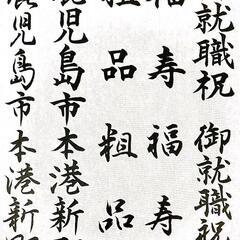 就職祝 御就職祝
福寿 福寿
粗品 粗品
鹿児島市本港新
鹿児島市本港新